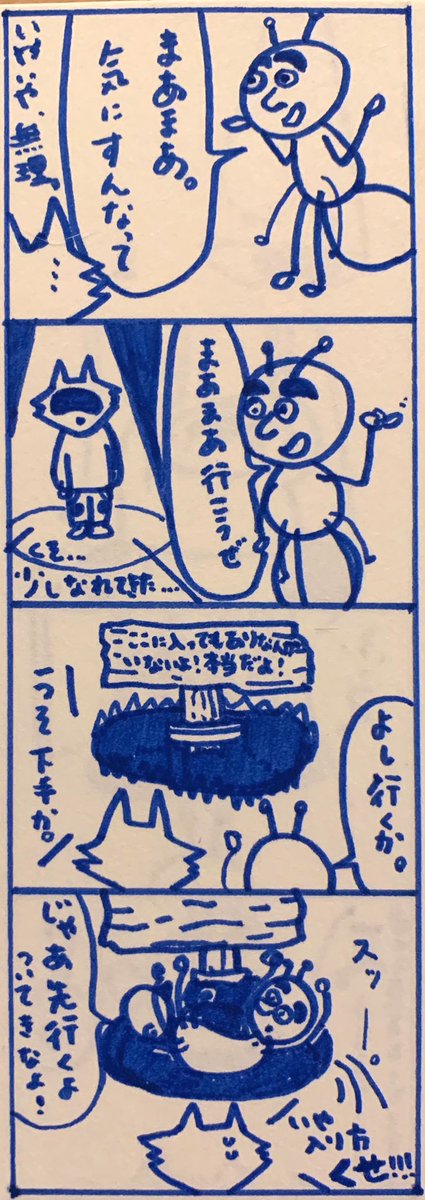 まあまあ。
気にすんなって
いやいや、無理。
…
まあまあ行こうぜ
くそ…
少しなれてきた…
よし行くか。
ここに入ってもありなんて
いないよ!本当だよ!
うそ下手か。
スッー。
じゃあ先行くよ
ついてきなよ!
いや
入り方
クセ!!!